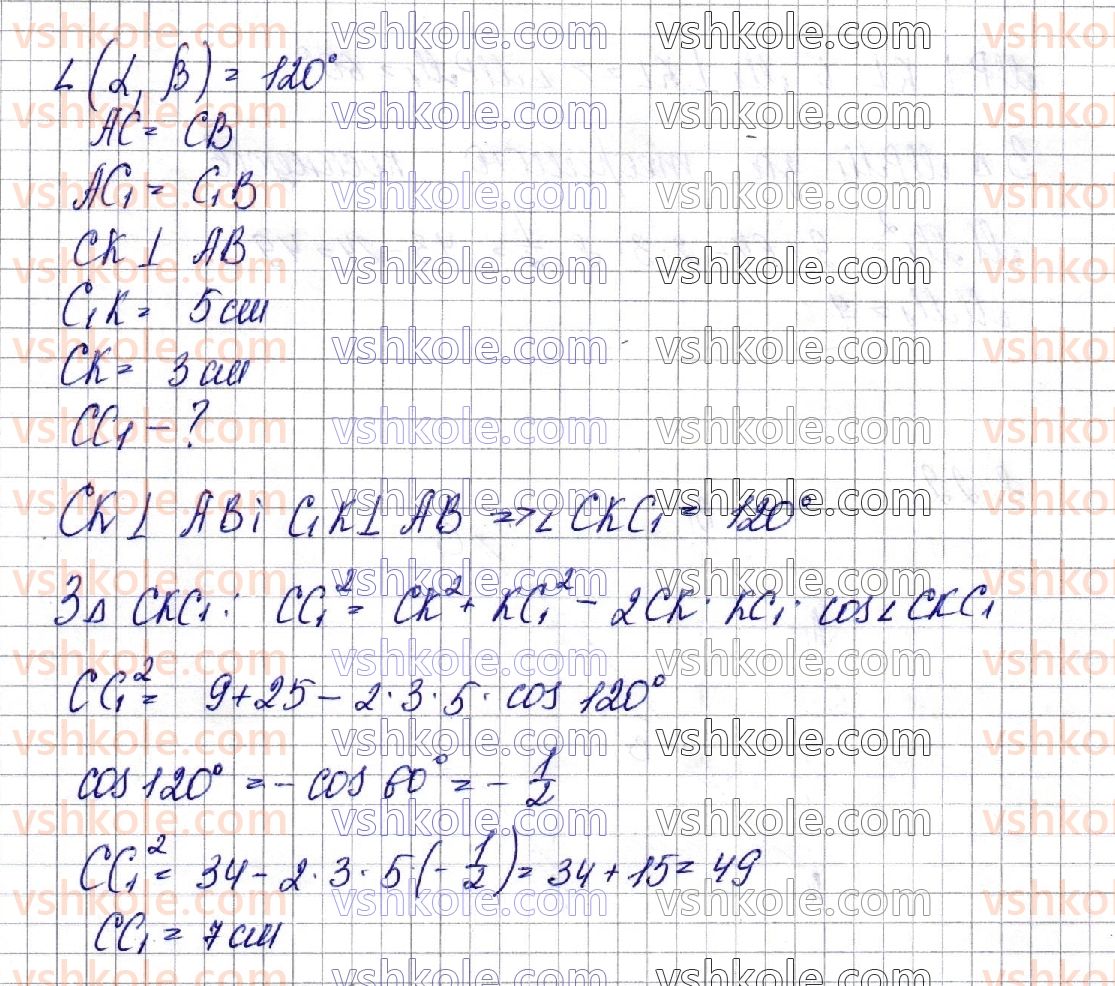 ∠(α, β) = 120°
AC = CB
AC₁ = C₁B
CK ⊥ AB
C₁K = 5 см
CK = 3 см
CC₁ - ?
CK ⊥ AB і C₁K ⊥ AB => ∠CKC₁ = 120°
З Δ CKC₁: CC₁² = CK² + KC₁² - 2CK · KC₁ · cos∠CKC₁
CC₁² = 9+25 - 2·3·5· cos 120°
cos 120° = - cos 60° = - 1/2
CC₁² = 34 - 2·3·5·(- 1/2) = 34 + 15 = 49
CC₁ = 7 см
vshkole.com